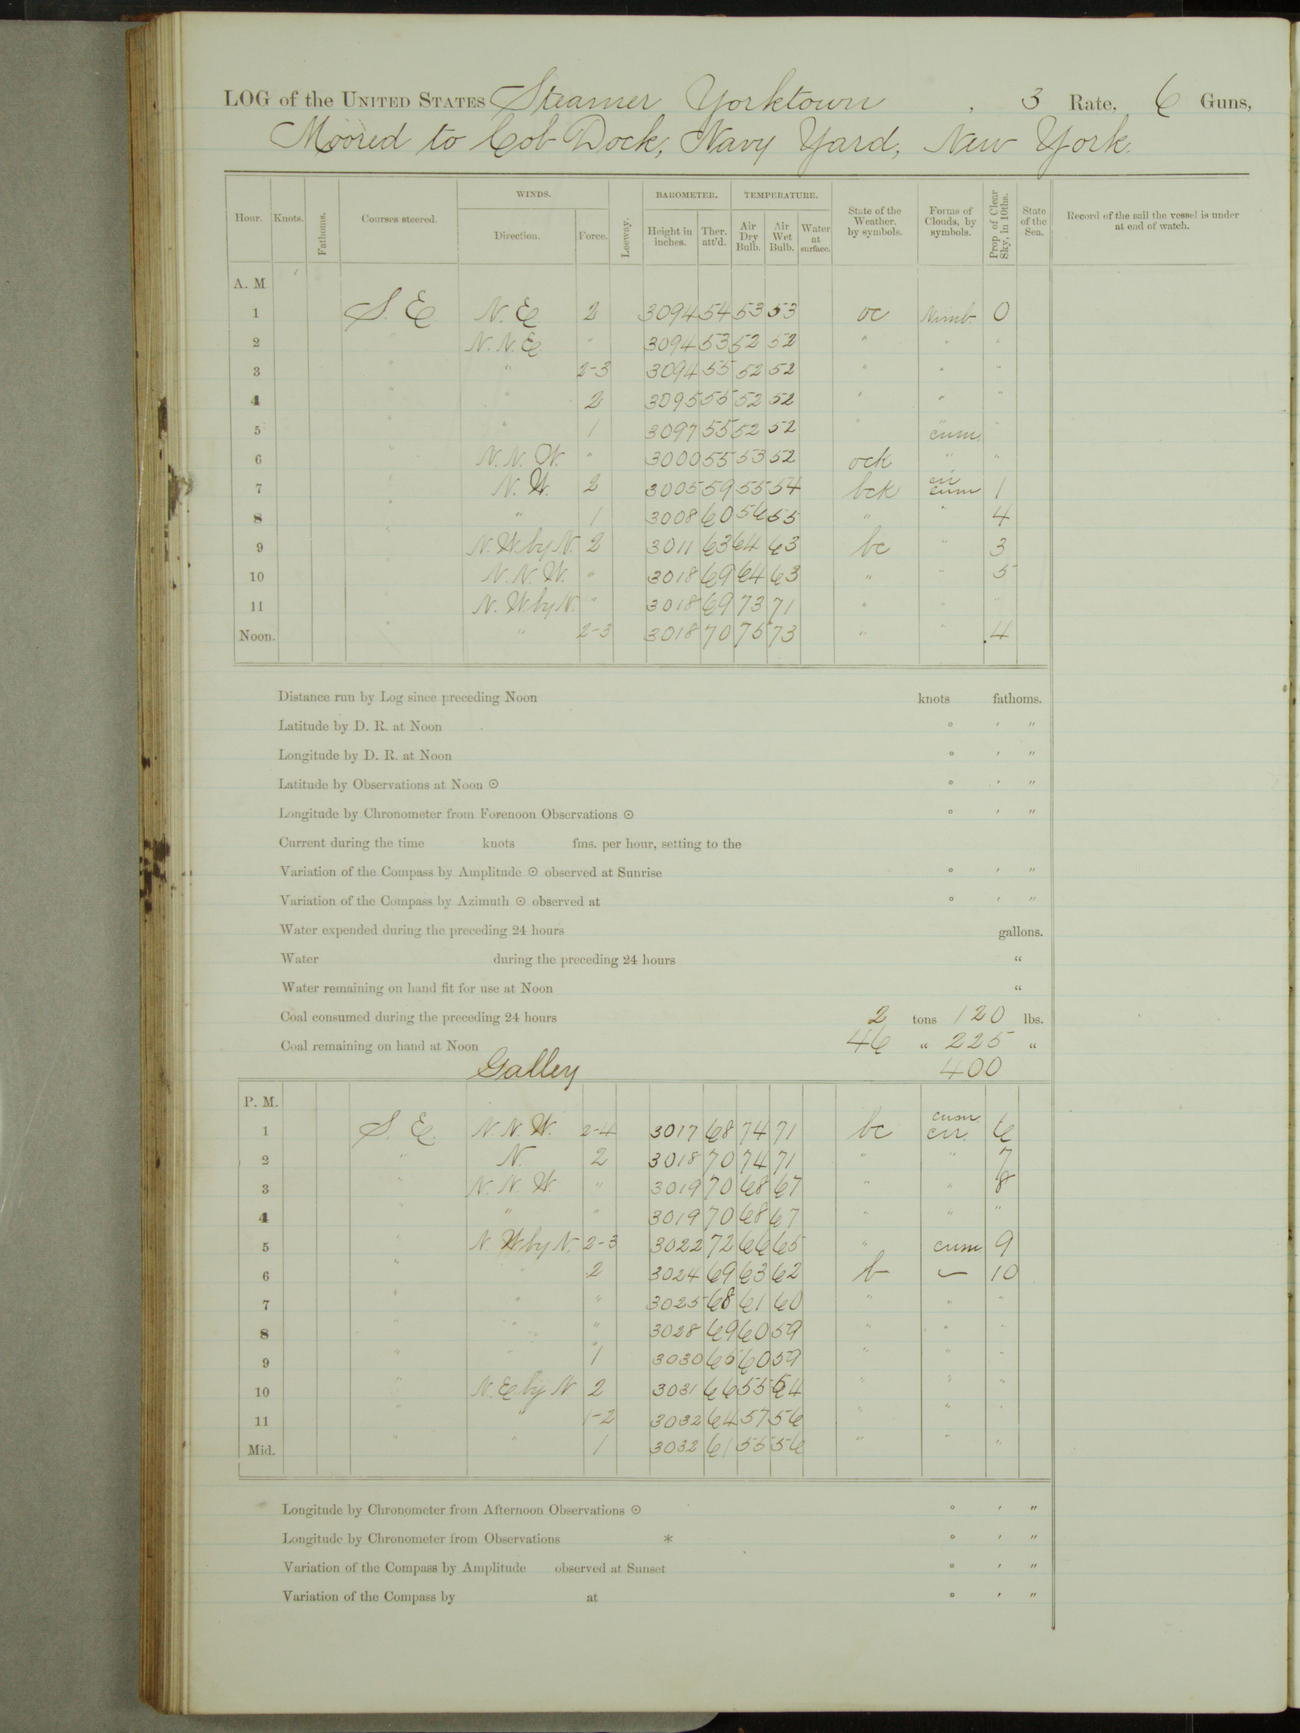 LOG of the UNITED STATES Steamer Yorktown, 3 Rate, 6 Guns,
Moored to Cob Dock, Navy Yard, New York.
WINDS. BAROMETER. TEMPERATURE.
Hour. Knots. Fathoms. Courses steered. Direction. Force. Leeway. Height in inches. Ther. att'd. Air Dry Bulb. Air Wet Bulb. Water at surface. State of the Weather, by symbols. Forms of Clouds, by symbols. Prop. of Clear Sky, in 10ths. State of the Sea. Record of the sail the vessel is under at end of watch.
A. M.
1 S. E N. E 2 3094 54 53 53 oc Nimb. 0
2 " N. N. E " 3094 53 52 52 " " "
3 " " 2-3 3094 55 52 52 " " "
4 " " 2 3095 55 52 52 " " "
5 " " 1 3097 55 52 52 " cum. "
6 " N. N. W. " 3000 55 53 52 ock " "
7 " N. W. 2 3005 59 55 54 bck cir cum 1
8 " " 1 3008 60 56 55 " " 4
9 " N. W by N. 2 3011 63 64 63 bc " 3
10 " N. N. W. " 3018 69 64 63 " " 5
11 " N. W by N. " 3018 69 73 71 " " "
Noon. " " 2-3 3018 70 75 73 " " 4
Distance run by Log since preceding Noon knots fathoms.
Latitude by D. R. at Noon ° ' "
Longitude by D. R. at Noon ° ' "
Latitude by Observations at Noon ☉ ° ' "
Longitude by Chronometer from Forenoon Observations ☉ ° ' "
Current during the time knots fms. per hour, setting to the
Variation of the Compass by Amplitude ☉ observed at Sunrise ° ' "
Variation of the Compass by Azimuth ☉ observed at ° ' "
Water expended during the preceding 24 hours gallons.
Water during the preceding 24 hours "
Water remaining on hand fit for use at Noon "
Coal consumed during the preceding 24 hours 2 tons 120 lbs.
Coal remaining on hand at Noon 46 " 225 "
Galley 400
P. M.
1 S. E. N. N. W. 2-4 3017 68 74 71 bc cum cir. 6
2 " N. 2 3018 70 74 71 " " 7
3 " N. N. W. " 3019 70 68 67 " " 8
4 " " " 3019 70 68 67 " " "
5 " N. W by N. 2-3 3022 72 66 65 " cum 9
6 " " 2 3024 69 63 62 b — 10
7 " " " 3025 68 61 60 " " "
8 " " " 3028 69 60 59 " " "
9 " " 1 3030 65 60 59 " " "
10 " N. E by N 2 3031 66 55 54 " " "
11 " " 1-2 3032 64 57 56 " " "
Mid. " " 1 3032 61 55 56 " " "
Longitude by Chronometer from Afternoon Observations ☉ ° ' "
Longitude by Chronometer from Observations * ° ' "
Variation of the Compass by Amplitude observed at Sunset ° ' "
Variation of the Compass by at ° ' "